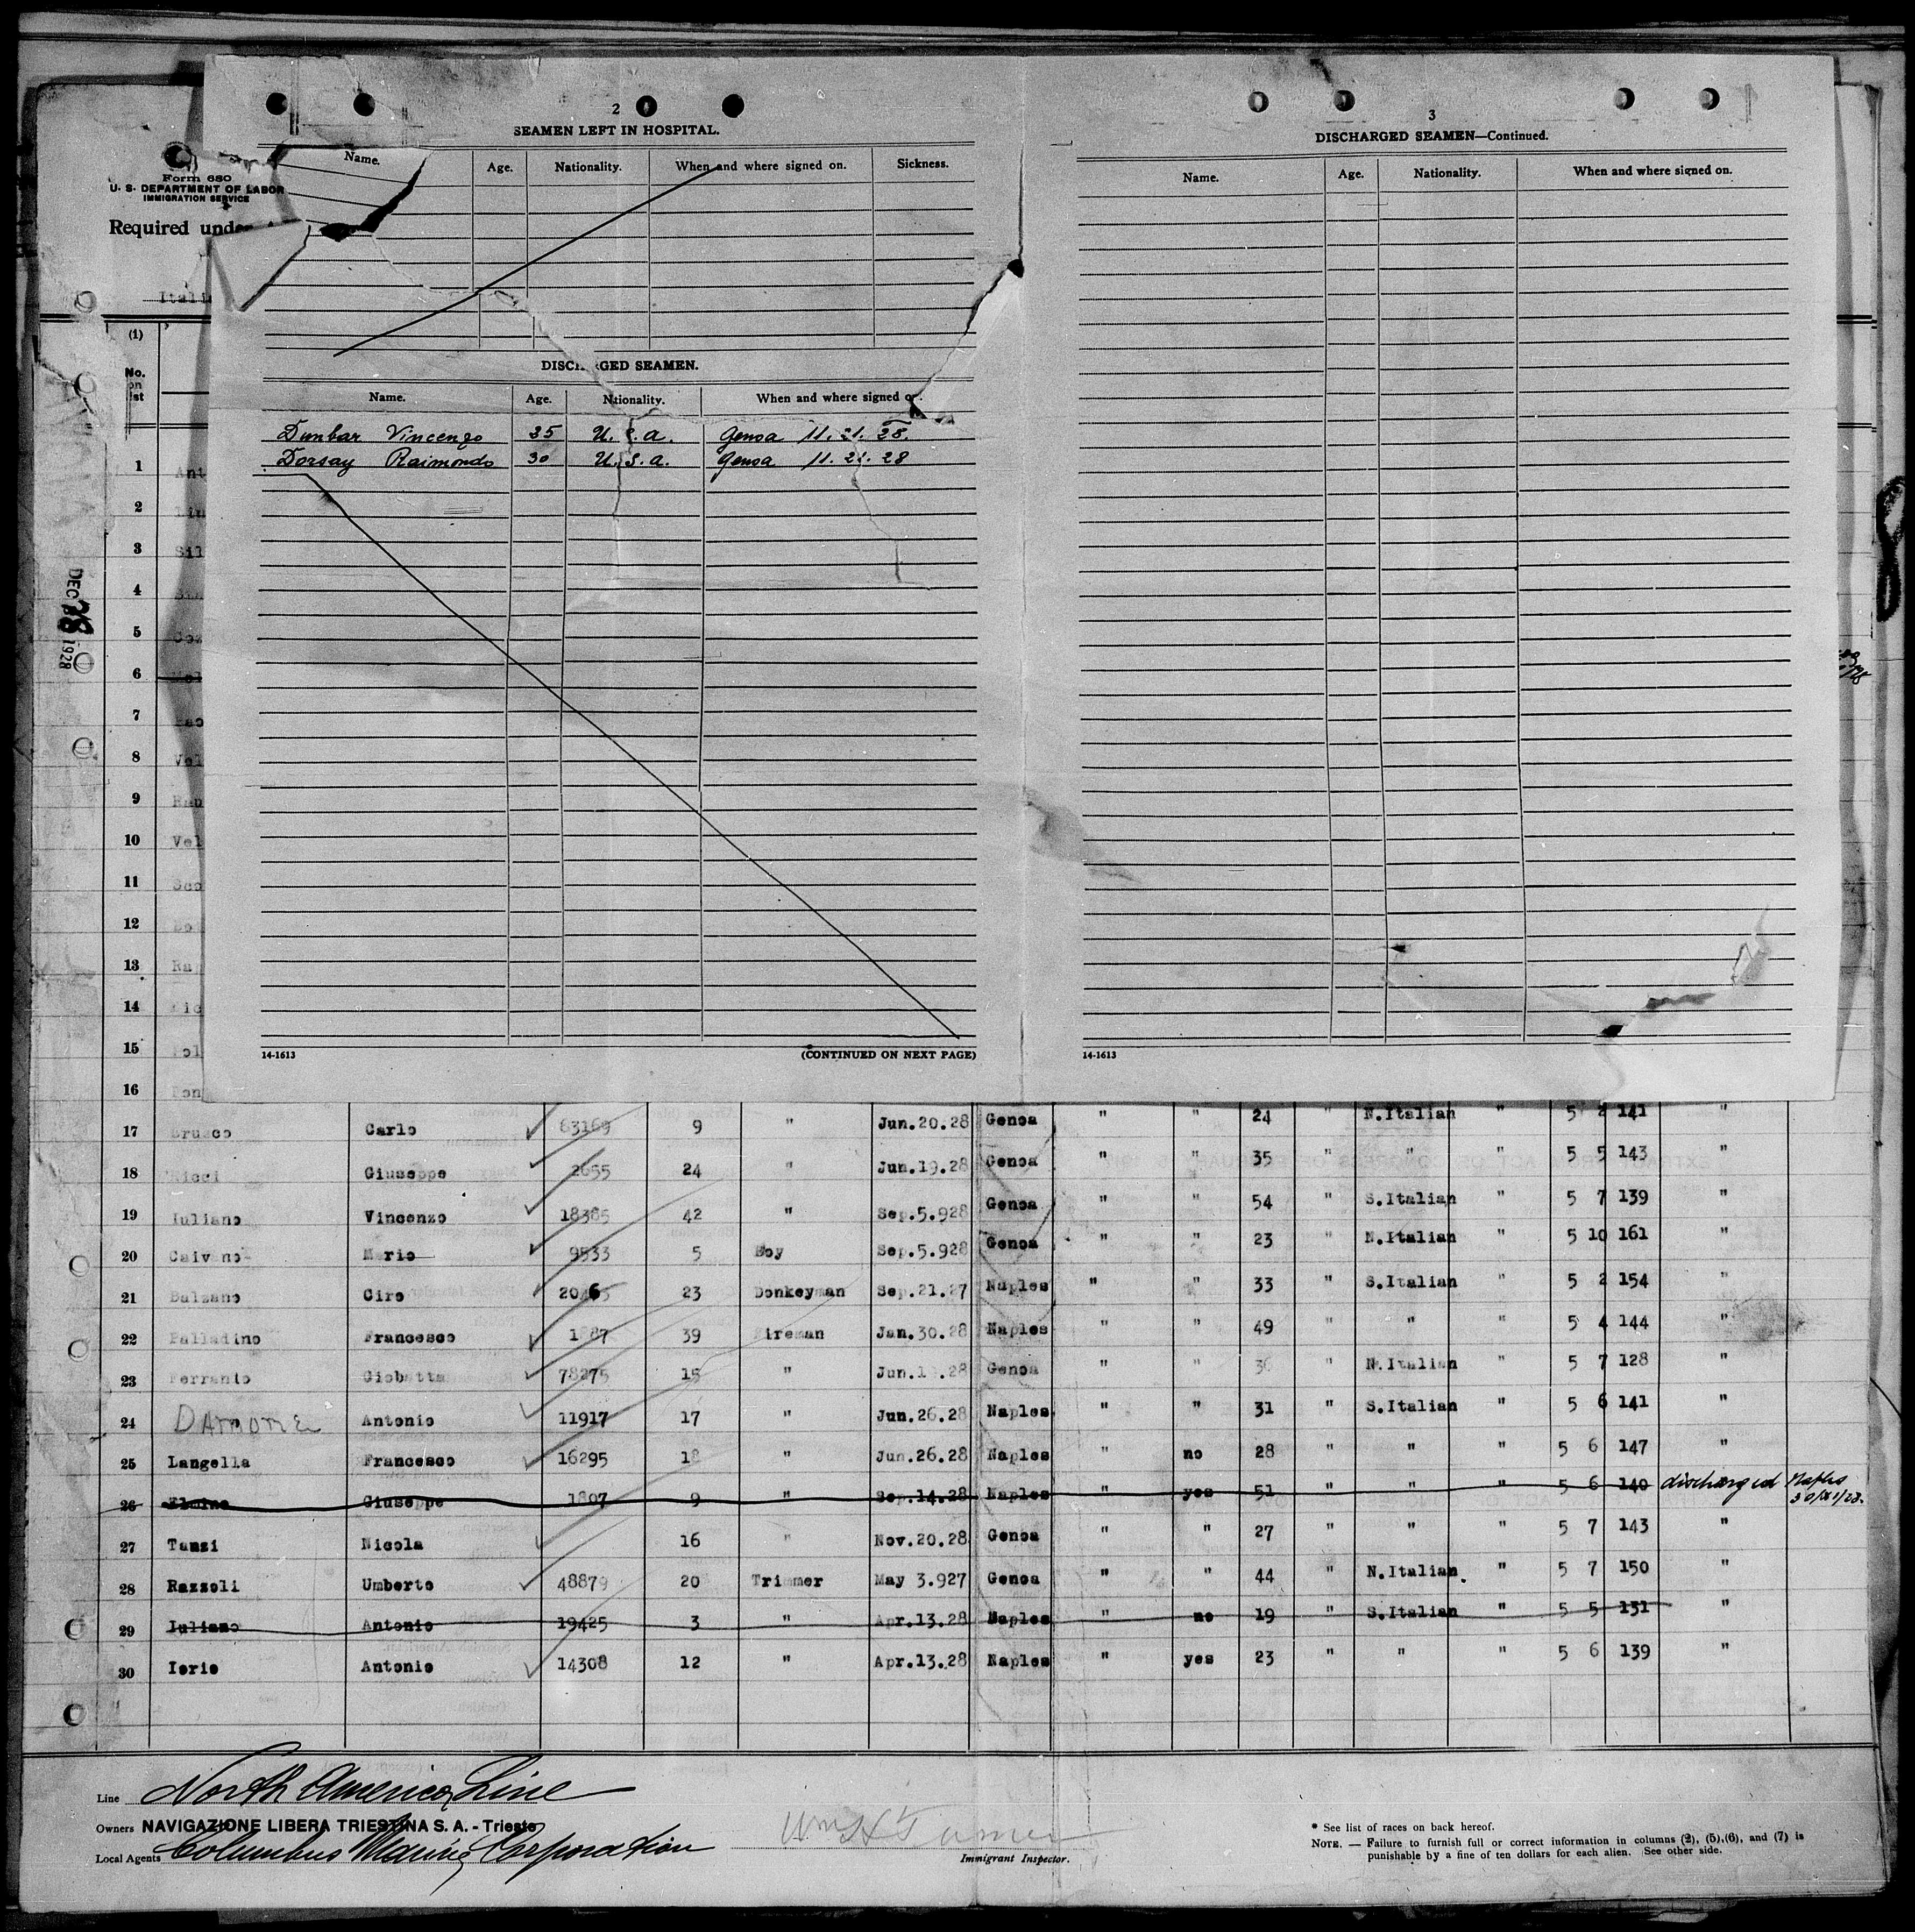 2
SEAMEN LEFT IN HOSPITAL.
Name. Age. Nationality. When and where signed on. Sickness.
DISCHARGED SEAMEN.
Name. Age. Nationality. When and where signed
Dunbar Vincenzo 25 U.S.a. Genoa 11.21.28.
Dorsay Raimondo 30 U.S.a. Genoa 11.21.28
14-1613 (CONTINUED ON NEXT PAGE)
3
DISCHARGED SEAMEN—Continued.
Name. Age. Nationality. When and where signed on.
14-1613
Form 680
U. S. DEPARTMENT OF LABOR
IMMIGRATION SERVICE
Required under
Itali
(1)
No.
on
list
DEC 1928
1 Ant
2
3 Sil
4
5 Coz
6
7
8 Vel
9
10 Vel
11
12
13 Ra
14
15
16
17 Brusco Carlo 83169 9 " Jun.20.28 Genoa " " 24 " N.Italian " 5 2 141 "
18 Ricci Giuseppe 2655 24 " Jun.19.28 Genoa " " 35 " " " 5 5 143 "
19 Iuliano Vincenzo 18385 42 " Sep.5.928 Genoa " " 54 " S.Italian " 5 7 139 "
20 Caivano Mario 9533 5 Boy Sep.5.928 Genoa " " 23 " N.Italian " 5 10 161 "
21 Balzano Ciro 23 Donkeyman Sep.21.27 Naples " " 33 " S.Italian " 5 2 154 "
22 Palladino Francesco 39 Fireman Jan.30.28 Naples " " 49 " " 5 4 144 "
23 Ferranto Giobatta 78275 15 " Genoa " " 36 " N.Italian " 5 7 128 "
24 DAMONE Antonio 11917 17 " Jun.26.28 Naples " " 31 " S.Italian " 5 6 141 "
25 Langella Francesco 16295 18 " Jun.26.28 Naples " no 28 " " " 5 6 147 "
26 Giuseppe 1807 9 " Sep.14.28 Naples " yes 51 " " " 5 6 140 discharged Naples
27 Tanzi Nicola 16 " Nov.20.28 Genoa " " 27 " " " 5 7 143 "
28 Razzoli Umberto 48879 20 Trimmer May 3.927 Genoa " " 44 " N.Italian " 5 7 150 "
29 Iuliano Antonio 19425 3 " Apr.13.28 Naples " no 19 " S.Italian " 5 5 131 "
30 Iorio Antonio 14308 12 " Apr.13.28 Naples " yes 23 " " " 5 6 139 "
Line North America Line
Owners NAVIGAZIONE LIBERA TRIESTINA S. A. - Trieste
Local Agents Columbus Marine Corporation
Wm H Turner
Immigrant Inspector.
* See list of races on back hereof.
NOTE. — Failure to furnish full or correct information in columns (2), (5), (6), and (7) is
punishable by a fine of ten dollars for each alien. See other side.